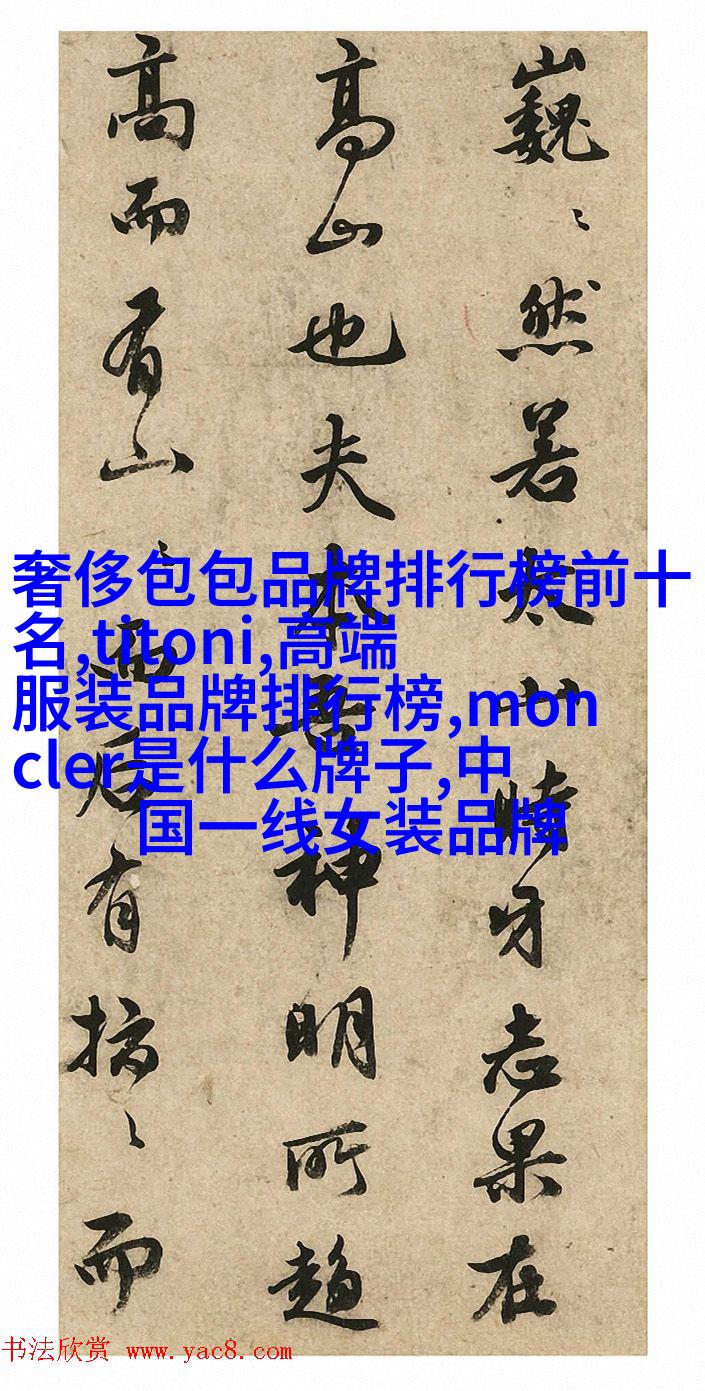 巍〻然若太山時牙志果在
高山也夫本吾神明所趨
高而有山〻而后有搞〻而
奢侈包包品牌排行榜前十
名,titoni,高端
服装品牌排行榜,mon
cler是什么牌子,中
国一线女装品牌
书法欣赏 www.yac8.com